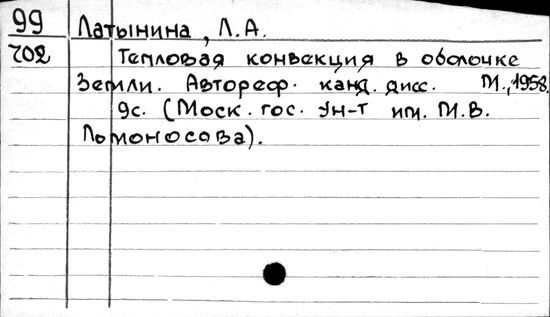 99 Латынина, Л.А.
702 Тепловая конвекция в оболочке
Земли. Автореф. канд. дисс. М., 1958.
9с. (Моск. гос. ун-т им. М.В.
Ломоносова).